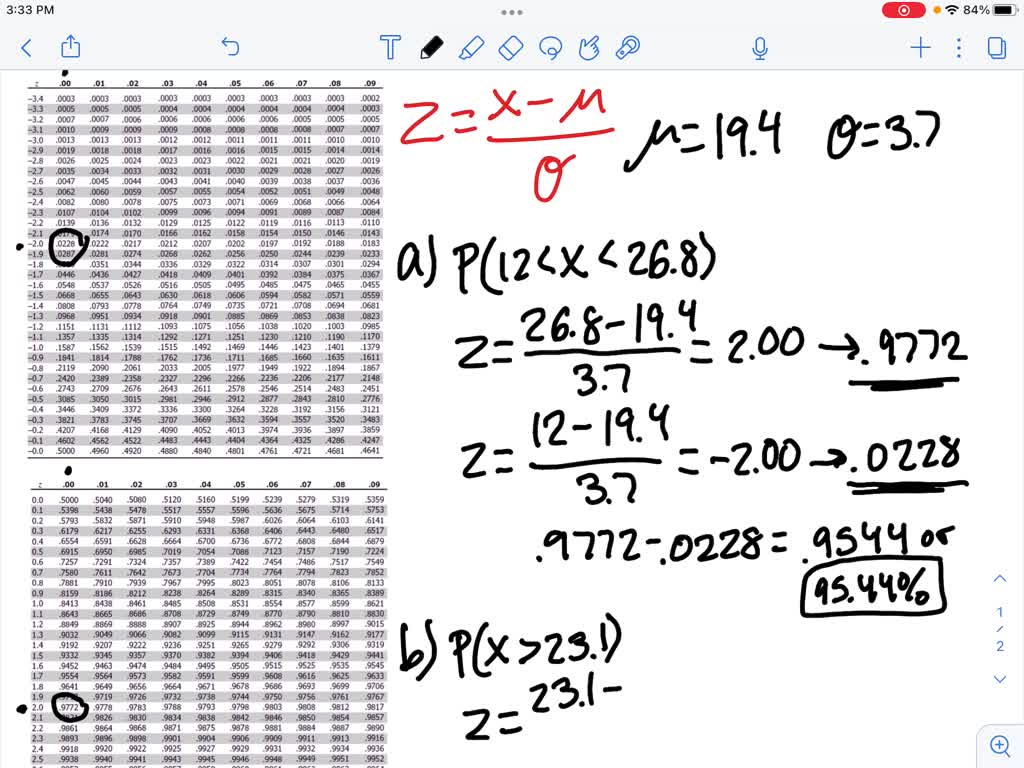 3:33 PM
84%
z .00 .01 .02 .03 .04 .05 .06 .07 .08 .09
−3.4 .0003 .0003 .0003 .0003 .0003 .0003 .0003 .0003 .0003 .0002
−3.3 .0005 .0005 .0005 .0004 .0004 .0004 .0004 .0004 .0004 .0003
−3.2 .0007 .0007 .0006 .0006 .0006 .0006 .0006 .0005 .0005 .0005
−3.1 .0010 .0009 .0009 .0009 .0008 .0008 .0008 .0008 .0007 .0007
−3.0 .0013 .0013 .0013 .0012 .0012 .0011 .0011 .0011 .0010 .0010
−2.9 .0019 .0018 .0018 .0017 .0016 .0016 .0015 .0015 .0014 .0014
−2.8 .0026 .0025 .0024 .0023 .0023 .0022 .0021 .0021 .0020 .0019
−2.7 .0035 .0034 .0033 .0032 .0031 .0030 .0029 .0028 .0027 .0026
−2.6 .0047 .0045 .0044 .0043 .0041 .0040 .0039 .0038 .0037 .0036
−2.5 .0062 .0060 .0059 .0057 .0055 .0054 .0052 .0051 .0049 .0048
−2.4 .0082 .0080 .0078 .0075 .0073 .0071 .0069 .0068 .0066 .0064
−2.3 .0107 .0104 .0102 .0099 .0096 .0094 .0091 .0089 .0087 .0084
−2.2 .0139 .0136 .0132 .0129 .0125 .0122 .0119 .0116 .0113 .0110
−2.1 .0174 .0170 .0166 .0162 .0158 .0154 .0150 .0146 .0143
−2.0 .0228 .0222 .0217 .0212 .0207 .0202 .0197 .0192 .0188 .0183
−1.9 .0287 .0281 .0274 .0268 .0262 .0256 .0250 .0244 .0239 .0233
−1.8 .0351 .0344 .0336 .0329 .0322 .0314 .0307 .0301 .0294
−1.7 .0446 .0436 .0427 .0418 .0409 .0401 .0392 .0384 .0375 .0367
−1.6 .0548 .0537 .0526 .0516 .0505 .0495 .0485 .0475 .0465 .0455
−1.5 .0668 .0655 .0643 .0630 .0618 .0606 .0594 .0582 .0571 .0559
−1.4 .0808 .0793 .0778 .0764 .0749 .0735 .0721 .0708 .0694 .0681
−1.3 .0968 .0951 .0934 .0918 .0901 .0885 .0869 .0853 .0838 .0823
−1.2 .1151 .1131 .1112 .1093 .1075 .1056 .1038 .1020 .1003 .0985
−1.1 .1357 .1335 .1314 .1292 .1271 .1251 .1230 .1210 .1190 .1170
−1.0 .1587 .1562 .1539 .1515 .1492 .1469 .1446 .1423 .1401 .1379
−0.9 .1841 .1814 .1788 .1762 .1736 .1711 .1685 .1660 .1635 .1611
−0.8 .2119 .2090 .2061 .2033 .2005 .1977 .1949 .1922 .1894 .1867
−0.7 .2420 .2389 .2358 .2327 .2296 .2266 .2236 .2206 .2177 .2148
−0.6 .2743 .2709 .2676 .2643 .2611 .2578 .2546 .2514 .2483 .2451
−0.5 .3085 .3050 .3015 .2981 .2946 .2912 .2877 .2843 .2810 .2776
−0.4 .3446 .3409 .3372 .3336 .3300 .3264 .3228 .3192 .3156 .3121
−0.3 .3821 .3783 .3745 .3707 .3669 .3632 .3594 .3557 .3520 .3483
−0.2 .4207 .4168 .4129 .4090 .4052 .4013 .3974 .3936 .3897 .3859
−0.1 .4602 .4562 .4522 .4483 .4443 .4404 .4364 .4325 .4286 .4247
−0.0 .5000 .4960 .4920 .4880 .4840 .4801 .4761 .4721 .4681 .4641
z .00 .01 .02 .03 .04 .05 .06 .07 .08 .09
0.0 .5000 .5040 .5080 .5120 .5160 .5199 .5239 .5279 .5319 .5359
0.1 .5398 .5438 .5478 .5517 .5557 .5596 .5636 .5675 .5714 .5753
0.2 .5793 .5832 .5871 .5910 .5948 .5987 .6026 .6064 .6103 .6141
0.3 .6179 .6217 .6255 .6293 .6331 .6368 .6406 .6443 .6480 .6517
0.4 .6554 .6591 .6628 .6664 .6700 .6736 .6772 .6808 .6844 .6879
0.5 .6915 .6950 .6985 .7019 .7054 .7088 .7123 .7157 .7190 .7224
0.6 .7257 .7291 .7324 .7357 .7389 .7422 .7454 .7486 .7517 .7549
0.7 .7580 .7611 .7642 .7673 .7704 .7734 .7764 .7794 .7823 .7852
0.8 .7881 .7910 .7939 .7967 .7995 .8023 .8051 .8078 .8106 .8133
0.9 .8159 .8186 .8212 .8238 .8264 .8289 .8315 .8340 .8365 .8389
1.0 .8413 .8438 .8461 .8485 .8508 .8531 .8554 .8577 .8599 .8621
1.1 .8643 .8665 .8686 .8708 .8729 .8749 .8770 .8790 .8810 .8830
1.2 .8849 .8869 .8888 .8907 .8925 .8944 .8962 .8980 .8997 .9015
1.3 .9032 .9049 .9066 .9082 .9099 .9115 .9131 .9147 .9162 .9177
1.4 .9192 .9207 .9222 .9236 .9251 .9265 .9279 .9292 .9306 .9319
1.5 .9332 .9345 .9357 .9370 .9382 .9394 .9406 .9418 .9429 .9441
1.6 .9452 .9463 .9474 .9484 .9495 .9505 .9515 .9525 .9535 .9545
1.7 .9554 .9564 .9573 .9582 .9591 .9599 .9608 .9616 .9625 .9633
1.8 .9641 .9649 .9656 .9664 .9671 .9678 .9686 .9693 .9699 .9706
1.9 .9719 .9726 .9732 .9738 .9744 .9750 .9756 .9761 .9767
2.0 .9772 .9778 .9783 .9788 .9793 .9798 .9803 .9808 .9812 .9817
2.1 .9826 .9830 .9834 .9838 .9842 .9846 .9850 .9854 .9857
2.2 .9861 .9864 .9868 .9871 .9875 .9878 .9881 .9884 .9887 .9890
2.3 .9893 .9896 .9898 .9901 .9904 .9906 .9909 .9911 .9913 .9916
2.4 .9918 .9920 .9922 .9925 .9927 .9929 .9931 .9932 .9934 .9936
2.5 .9938 .9940 .9941 .9943 .9945 .9946 .9948 .9949 .9951 .9952
z = x − μ / σ
μ = 19.4 σ = 3.7
a) P(12 < x < 26.8)
z = 26.8 − 19.4 / 3.7 = 2.00 → .9772
z = 12 − 19.4 / 3.7 = −2.00 → .0228
.9772 − .0228 = .9544 or
95.44%
b) P(x > 23.1)
z = 23.1 −
1
/
2